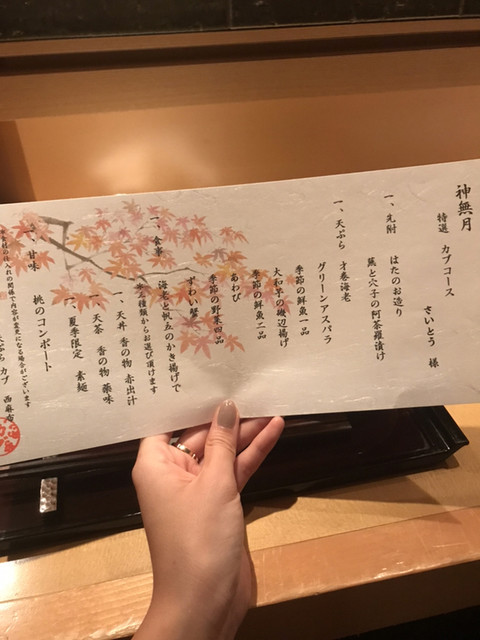 神無月
特選　カブコース　　さいとう　様
一、先附　はたのお造り
蕪と穴子の阿茶羅漬け
一、天ぷら　才巻海老
グリーンアスパラ
季節の鮮魚一品
大和芋の磯辺揚げ
季節の鮮魚二品
あわび
季節の野菜四品
ずわい蟹
一、食事　海老と帆立のかき揚げで
三種類からお選び頂けます
一、天丼　香の物　赤出汁
一、天茶　香の物　薬味
一、夏季限定　素麺
一、甘味　桃のコンポート
仕入れの関係で内容が変更になる場合がございます
天ぷら　カブ　西麻布